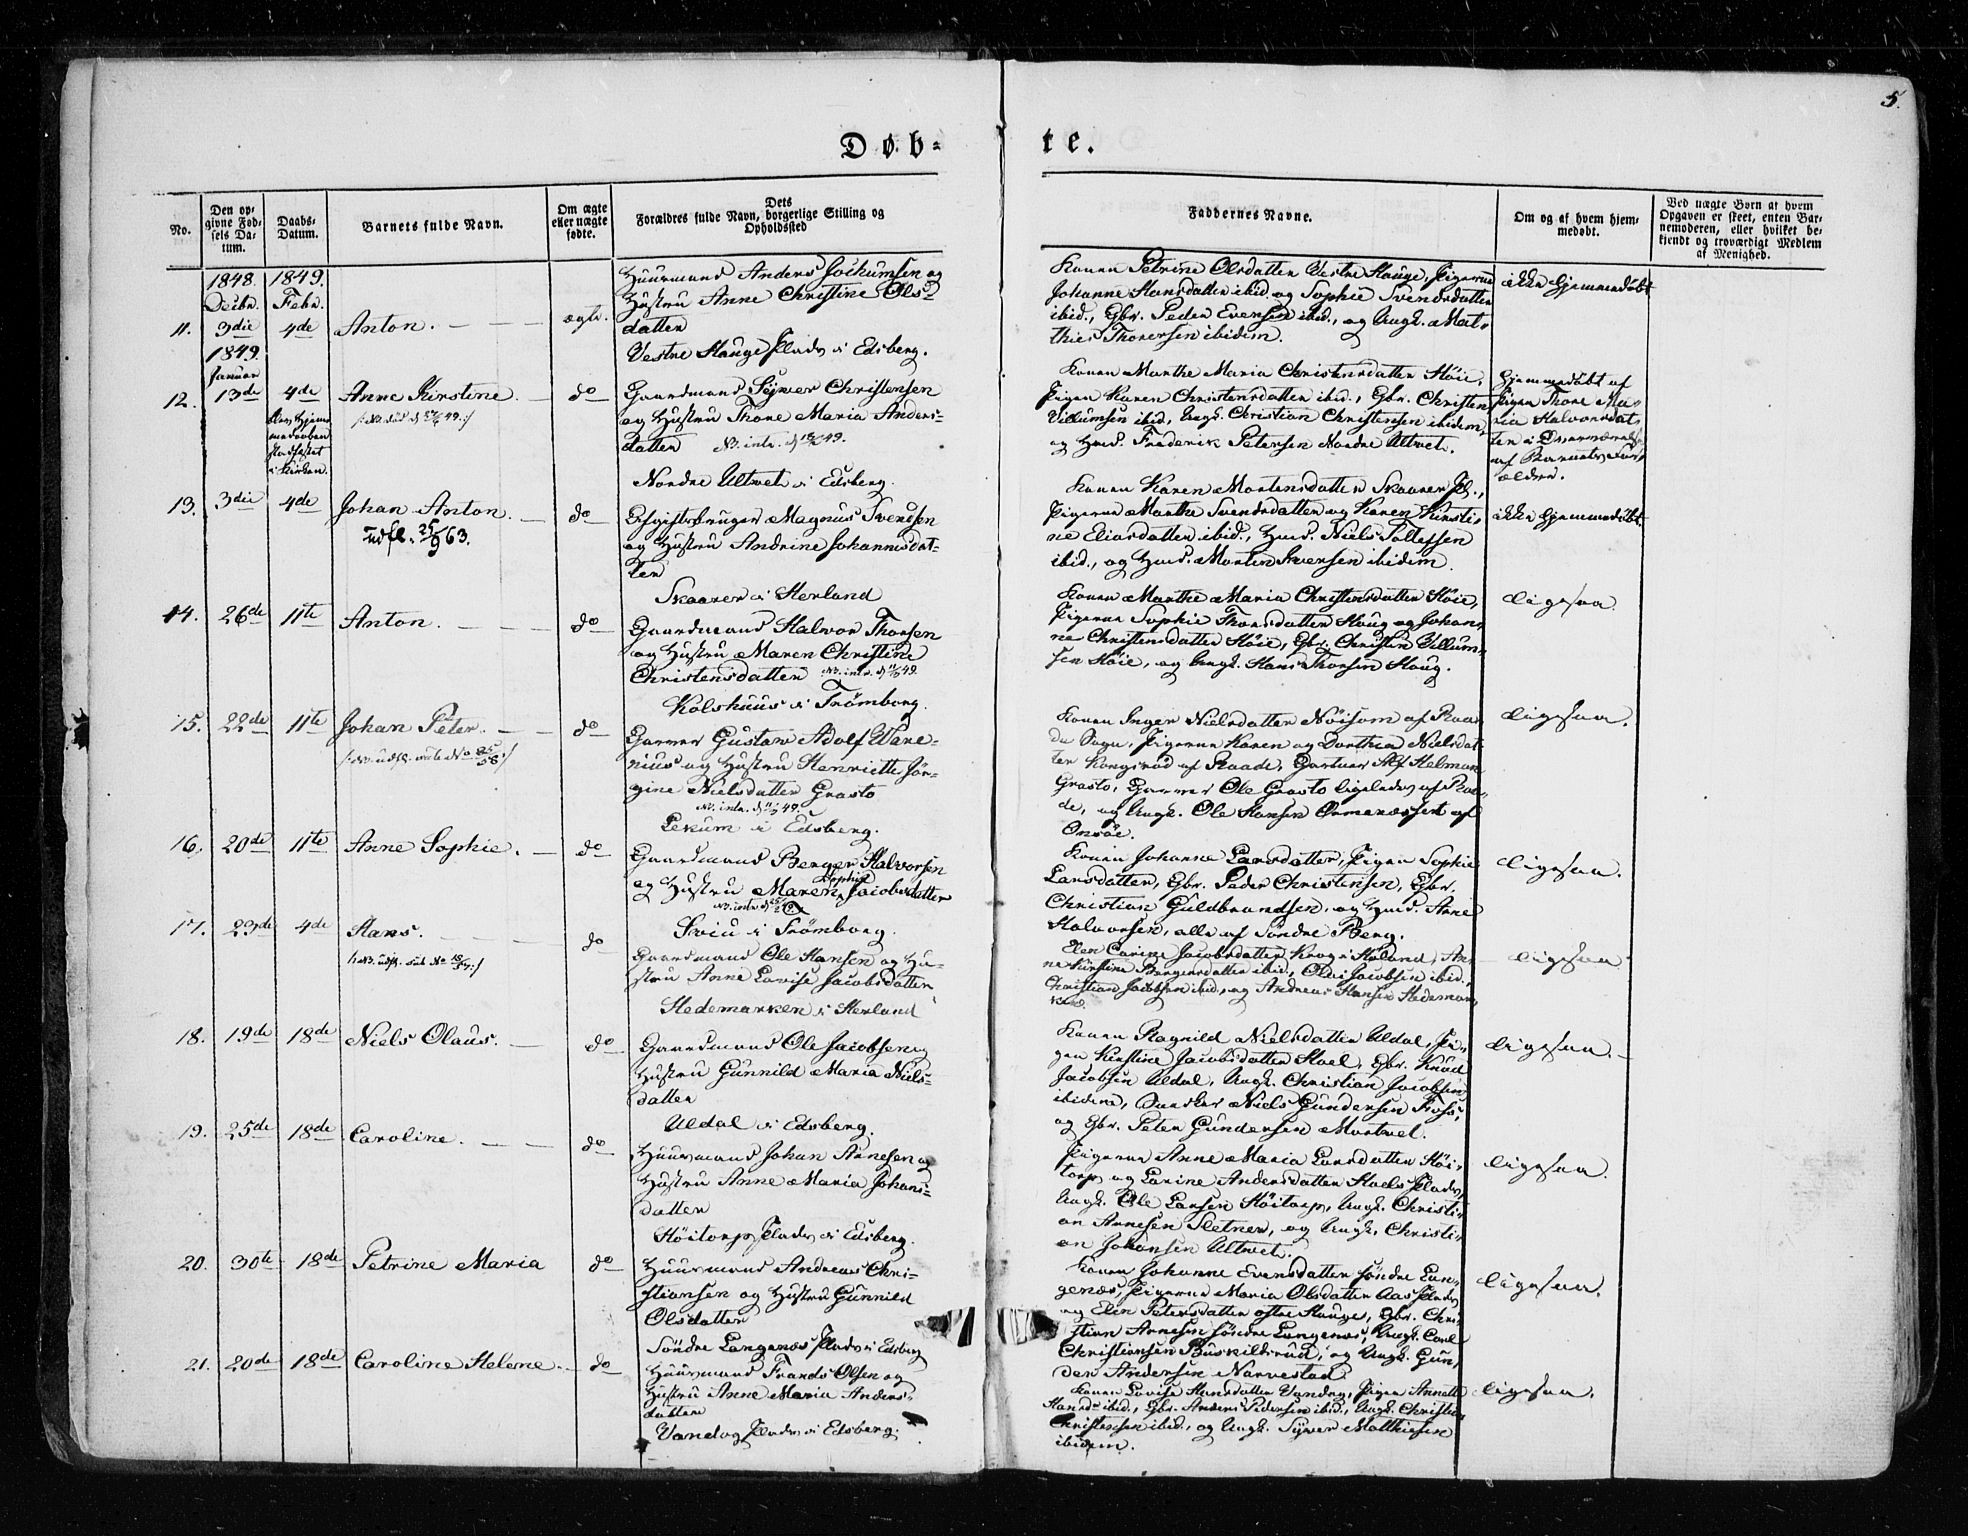 5.
Døb-
te.
No.
Den op-
givne Fød-
sels Da-
tum.
Daabs-
Datum.
Barnets fulde Navn.
Om ægte
eller uægte
fødte.
Dets
Forældres fulde Navn, borgerlige Stilling og
Opholdssted
Faddernes Navne.
Om og af hvem hjem-
medøbt.
Ved uægte Børn at hvem
Opgaven er skeet, enten Bar-
nemoderen, eller hvilket be-
kjendt og troværdigt Medlem
af Menighed.
1848. 1849.
Decbr. Febr.
11. 3die 4de Anton. ægte.
Huusmand Anders Jochumsen og
Hustru Anne Christine Ols-
datter
Vestre Hauge Plads i Edsberg.
Konen Petrine Olsdatter Vestre Hauge, Pigerne
Johanne Hansdatter ibid. og Sophie Svendsdatter
ibid., Gbr. Peder Evensen ibid., og Ungk. Mat-
thies Thoresen ibidem.
ikke hjemmedøbt
1849.
Januar
12. 13de 4de Anne Kirstine. do
blev hjem-
medaaben
stadfæstet
i Kirken.
Gaardmand Syver Christensen
og Hustru Thore Maria Anders-
datter
Nordre Ultvet i Edsberg.
Konen Marthe Maria Christensdatter Höie,
Pigen Karen Christensdatter ibid., Gbr. Christen
Villumsen ibid., Ungk. Christian Christensen ibidem,
og Huusm. Frederik Petersen Nordre Ultvet.
Hjemmedøbt af
Pigen Thore Ma-
ria Halvorsdat-
ter i Overværelse
af Barnets For-
ældre.
13. 3die 4de Johan Anton. do
udfl. 25/9 63.
Magnus Svendsen
og Hustru Andrine Johannesdat-
ter
Skaarer i Herland
Konen Karen Mortensdatter Skaarer Pl.,
Pigerne Marthe Svendsdatter og Karen Kirsti-
ne Eliasdatter ibid., Huusm. Niels Tollefsen
ibid., og Huusm. Morten Iversen ibidem.
ikke hjemmedøbt
14. 26de 11te Anton. do
Gaardmand Halvor Thorsen
og Hustru Maren Christine
Christensdatter
Kolshuus i Trömborg.
Konen Marthe Maria Christensdatter Höie,
Pigerne Sophie Thorsdatter Haug og Johan-
ne Christensdatter Höie, Gbr. Christen Villum-
sen Höie, og Ungk. Hans Thorsen Haug.
ligesaa.
15. 22de 11te Johan Peter. do
Garver Gustav Adolf Ware-
nius og Hustru Henriette Jör-
gine Nielsdatter Grasto
Lekum i Edsberg.
Konen Inger Nielsdatter Nöisom af Raa-
de Sogn, Pigerne Karen og Dorthea Nielsdat-
ter Kongsrød af Raade, Gartner Alf Helman
Grasto, Garver Ole Grasto ligeledes af Raa-
de, og Ungk. Ole Hansen Ormenæsset af
Onsöe.
ligesaa.
16. 20de 11te Anne Sophie. do
Gaardmand Berger Halvorsen
og Hustru Maren Sophie Jacobsdatter
i Trömborg.
Konen Johanne Larsdatter, Pigen Sophie
Larsdatter, Gbr. Peder Christensen, Gbr.
Christian Guldbrandsen, og Huusm. Arne
Halvorsen, alle af Söndre Berg.
ligesaa.
17. 29de 4de Hans. do
Gaardmand Ole Hansen og Hu-
stru Anne Lovise Jacobsdatter
Hedemarken i Herland
Elen Carine Jacobsdatter Krog i Høland, An-
ne Kirstine Bergersdatter ibid., Ole Jacobsen ibid.,
Christian Jacobsen ibid., og Andreas Hansen Hedemar-
ken.
ligesaa.
18. 19de 18de Niels Olaus. do
Gaardmand Ole Jacobsen og
Hustru Gunnild Maria Niels-
datter
Uldal i Edsberg.
Konen Ragnild Nielsdatter Uldal, Pi-
gen Kirstine Jacobsdatter Hoel, Gbr. Knud
Jacobsen Uldal, Ungk. Christian Jacobsen
ibidem, Niels Gundersen Foss,
og Gbr. Peter Gundersen Mortvet.
ligesaa.
19. 25de 18de Caroline. do
Huusmand Johan Arnesen og
Hustru Anne Maria Johans-
datter
Höitorp Plads i Edsberg.
Pigerne Anne Maria Larsdatter Höi-
torp og Larine Andersdatter Hoels Plads,
Ungk. Ole Larsen Höitorp, Ungk. Christi-
an Arnesen Sletner, og Ungk. Christi-
an Johansen Ultvet.
ligesaa.
20. 30te 18de Petrine Maria do
Huusmand Andreas Chri-
stiansen og Hustru Gunnild
Olsdatter
Söndre Langenæs Plads i Edsberg
Konen Johanne Evensdatter Söndre Lan-
genæs, Pigerne Maria Olsdatter Aas Plads
og Elen Petersdatter østre Hauge, Gbr. Chri-
stian Arnesen Söndre Langenæs, Ungk. Carl
Christiansen Buskildsrud, og Ungk. Gun-
der Andersen Narvestad
ligesaa.
21. 20de 18de Caroline Helene. do
Huusmand Frands Olsen og
Hustru Anne Maria Anders-
datter
Vandog Plads i Edsberg.
Konen Lovise Hansdatter Vandog, Pigen Annette
Hansd. ibid., Gbr. Anders Pedersen ibid., Ungk. Christian
Christensen ibid., og Ungk. Syver Matthiesen
ibidem.
ligesaa.